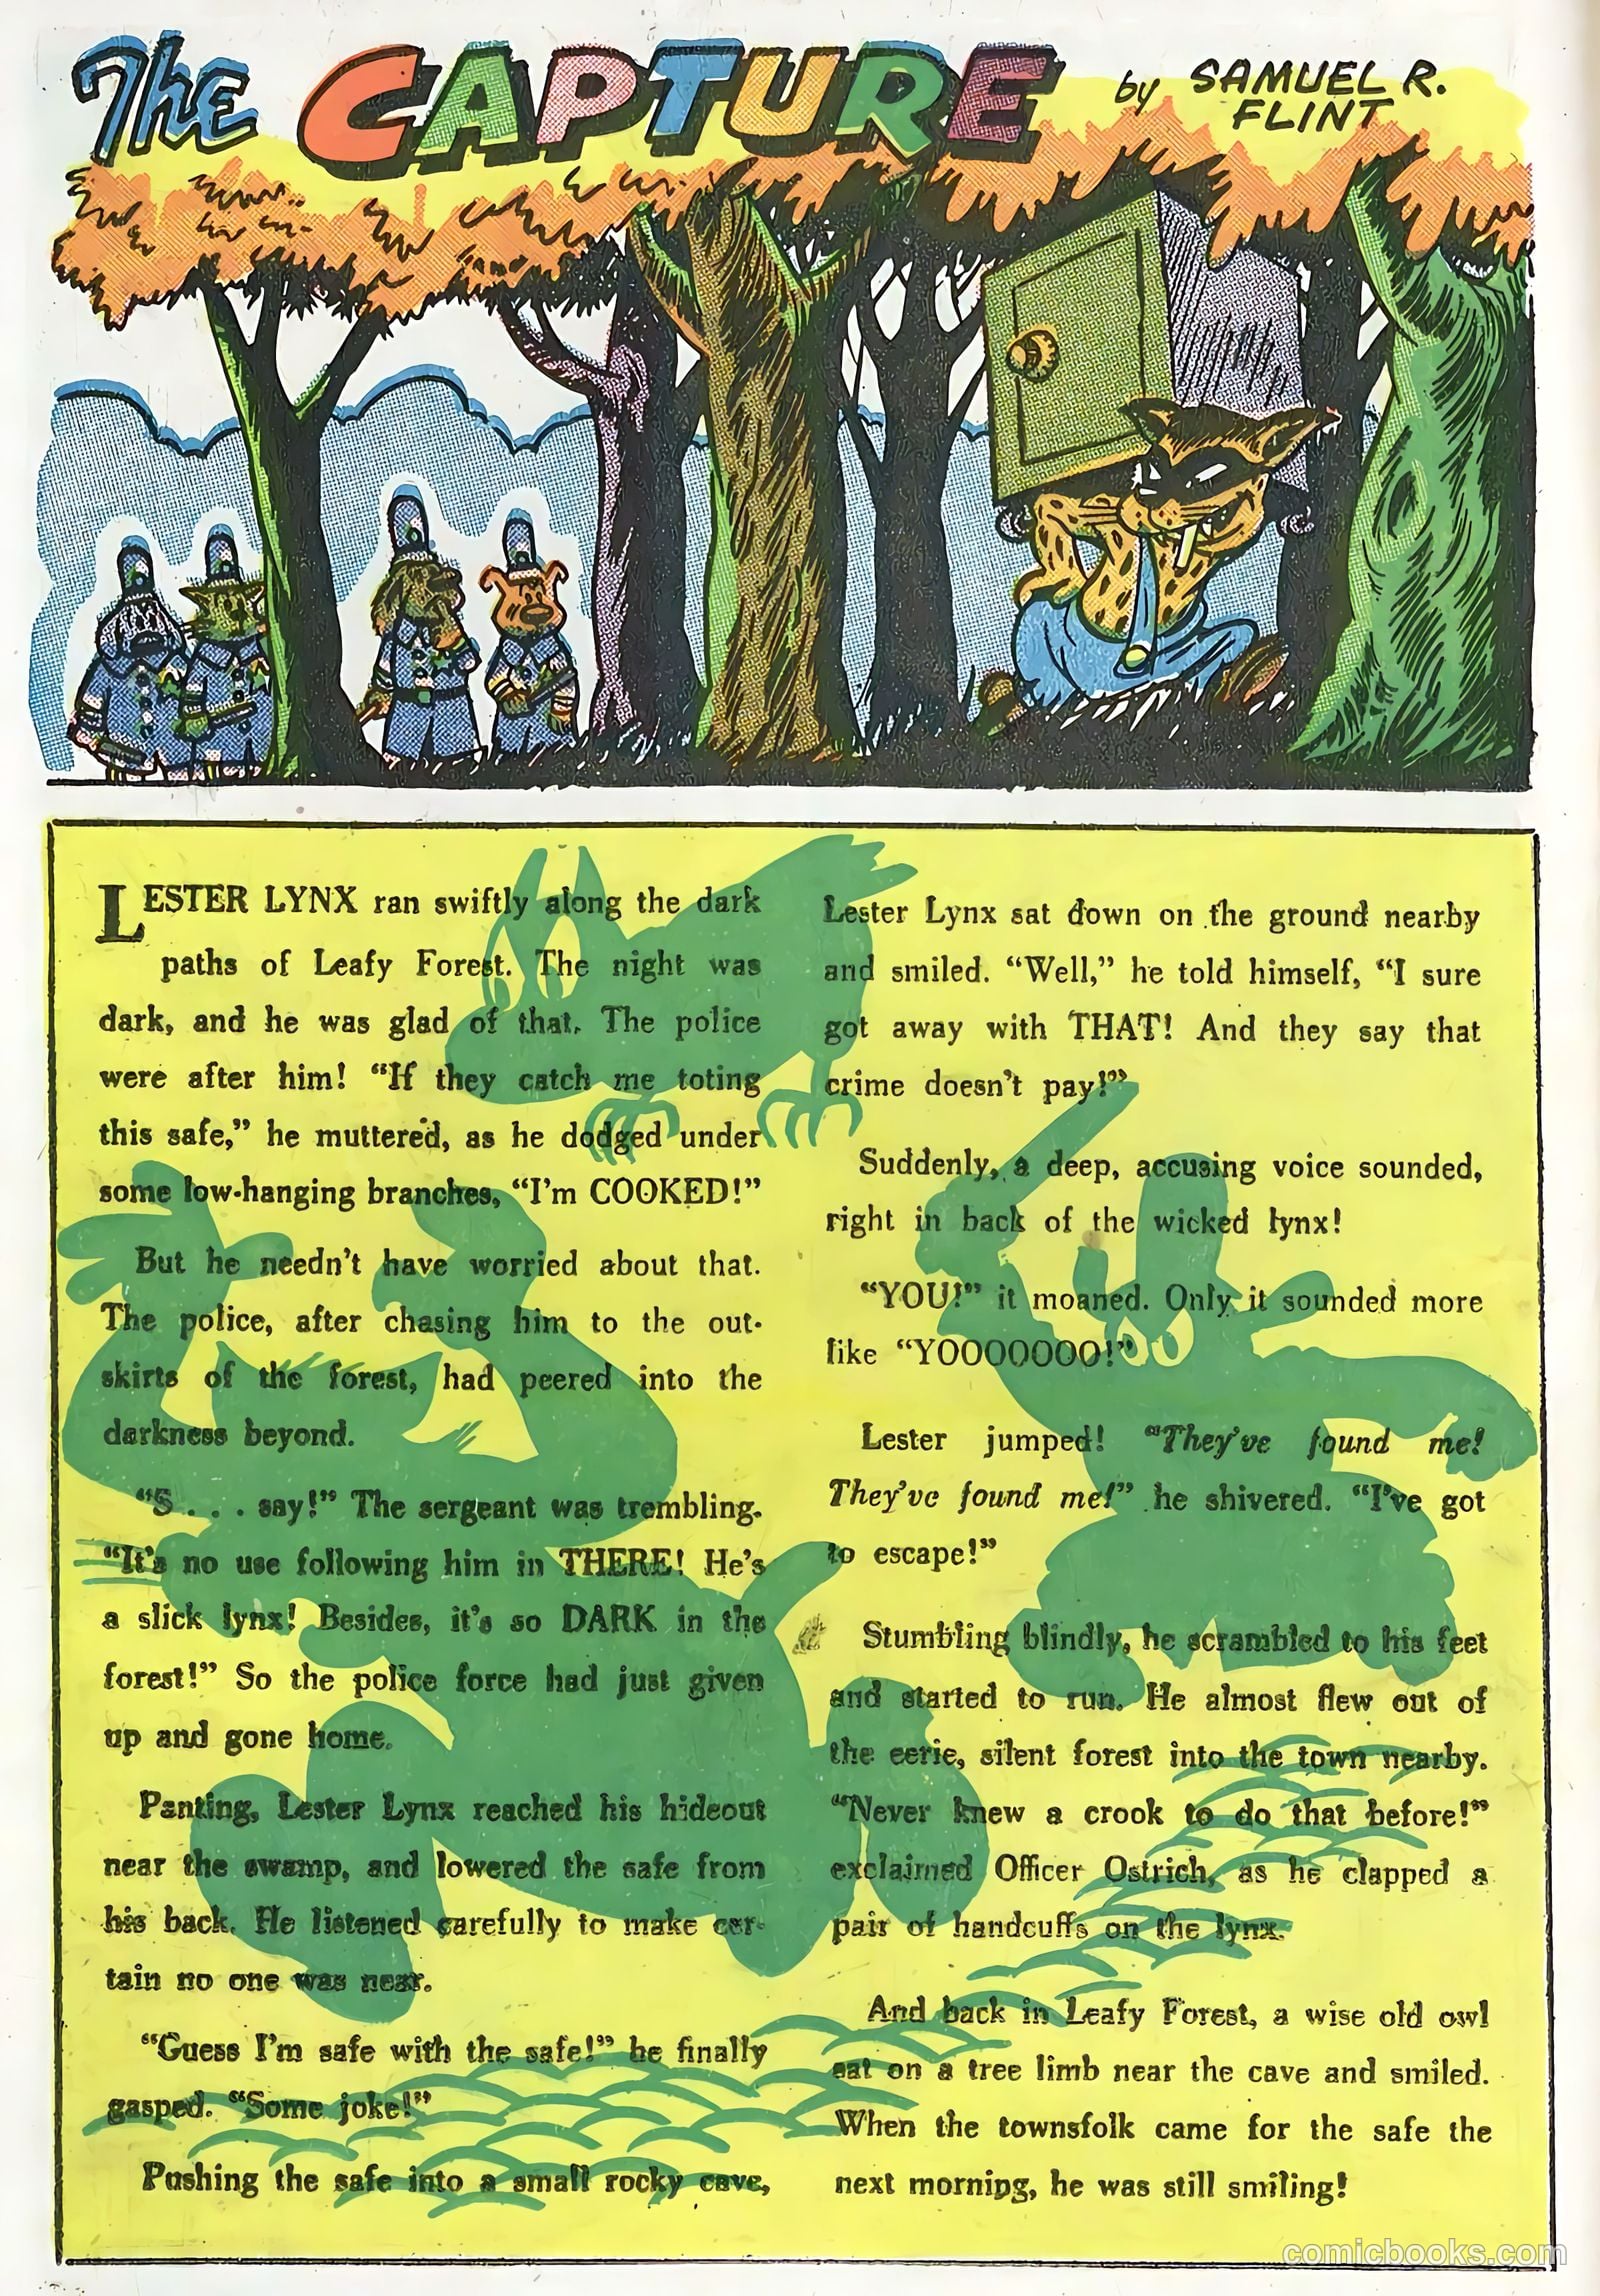 The CAPTURE by SAMUEL R.
FLINT
LESTER LYNX ran swiftly along the dark
paths of Leafy Forest. The night was
dark, and he was glad of that. The police
were after him! “If they catch me toting
this safe,” he muttered, as he dodged under
some low-hanging branches, “I’m COOKED!”
But he needn’t have worried about that.
The police, after chasing him to the out-
skirts of the forest, had peered into the
darkness beyond.
“S . . . say!” The sergeant was trembling.
“It’s no use following him in THERE! He’s
a slick lynx! Besides, it’s so DARK in the
forest!” So the police force had just given
up and gone home.
Panting, Lester Lynx reached his hideout
near the swamp, and lowered the safe from
his back. He listened carefully to make cer-
tain no one was near.
“Guess I’m safe with the safe!” he finally
gasped. “Some joke!”
Pushing the safe into a small rocky cave,
Lester Lynx sat down on the ground nearby
and smiled. “Well,” he told himself, “I sure
got away with THAT! And they say that
crime doesn’t pay!”
Suddenly, a deep, accusing voice sounded,
right in back of the wicked lynx!
“YOU!” it moaned. Only it sounded more
like “YOOOOOOO!”
Lester jumped! “They’ve found me!
They’ve found me!” he shivered. “I’ve got
to escape!”
Stumbling blindly, he scrambled to his feet
and started to run. He almost flew out of
the eerie, silent forest into the town nearby.
“Never knew a crook to do that before!”
exclaimed Officer Ostrich, as he clapped a
pair of handcuffs on the lynx.
And back in Leafy Forest, a wise old owl
sat on a tree limb near the cave and smiled.
When the townsfolk came for the safe the
next morning, he was still smiling!
comicbooks.com